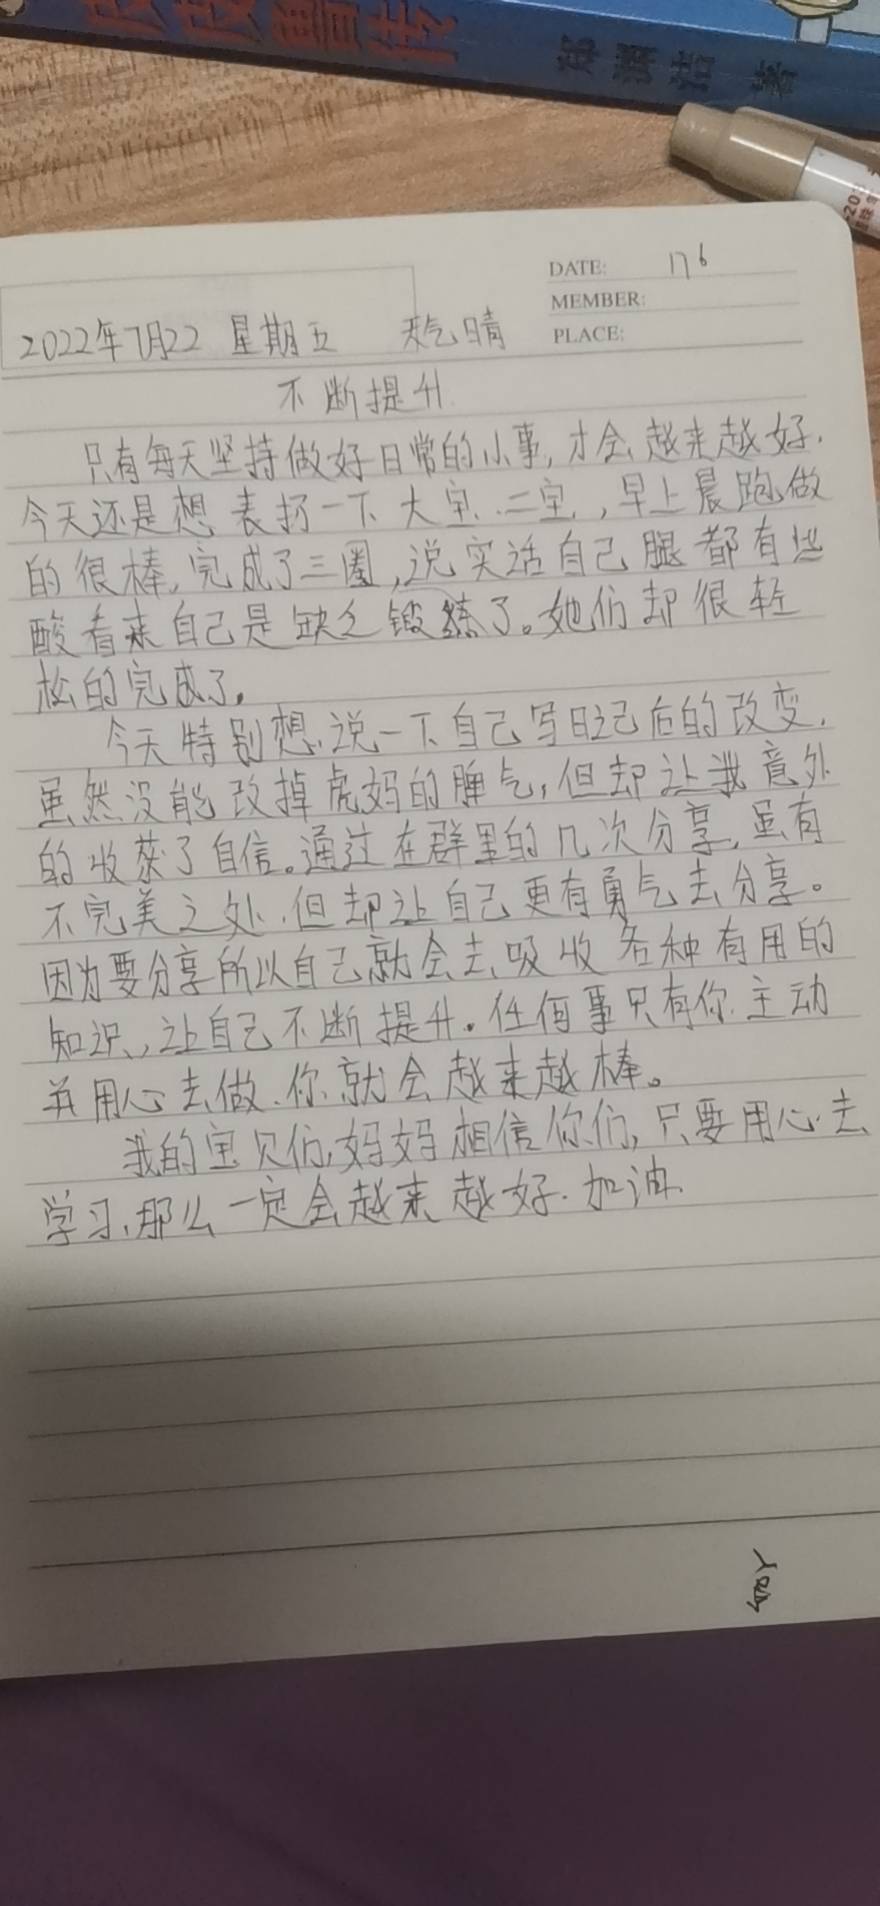 皮皮鲁传
郑渊洁 著
DATE: 176
MEMBER:
PLACE:
2022年7月22 星期五 天气晴
不断提升
只有每天坚持做好日常的小事,才会越来越好.
今天还是想表扬一下大宝、二宝,早上晨跑做
的很棒,完成了三圈,说实话自己腿都有些
酸看来自己是缺乏锻炼了。她们却很轻
松的完成了。
今天特别想说一下自己写日记后的改变,
虽然没能改掉虎妈的脾气,但却让我意外
的收获了自信。通过在群里的几次分享,虽有
不完美之处,但却让自己更有勇气去分享。
因为要分享所以自己就会去吸收各种有用的
知识,让自己不断提升。任何事只有你主动
并用心去做,你就会越来越棒。
我的宝贝们,妈妈相信你们,只要用心去
学习,那么一定会越来越好.加油